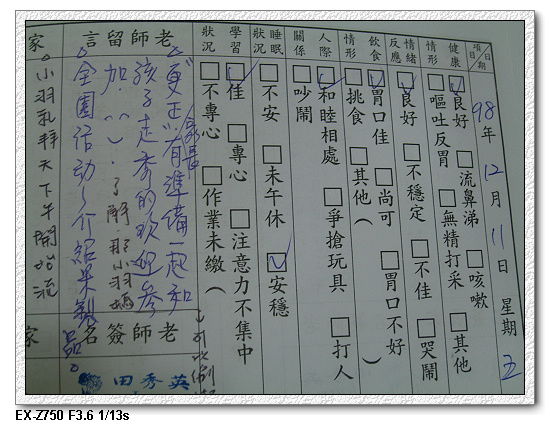 項目 日期
98年12月11日 星期五
健康情形
良好 流鼻涕 咳嗽
嘔吐反胃 無精打采 其他
情緒反應
良好 不穩定 不佳 哭鬧
飲食情形
胃口佳 尚可 胃口不好
挑食 其他(  )
人際關係
和睦相處 爭搶玩具 打人
吵鬧
睡眠狀況
不安 未午休 安穩
學習狀況
佳 專心 注意力不集中
不專心 作業未繳(
老師留言
更正 有準備一起和
孩子走秀的歡迎參
加
全園活動
老師簽名
田秀英
家
小羽禮拜天下午開始流
家
EX-Z750 F3.6 1/13s